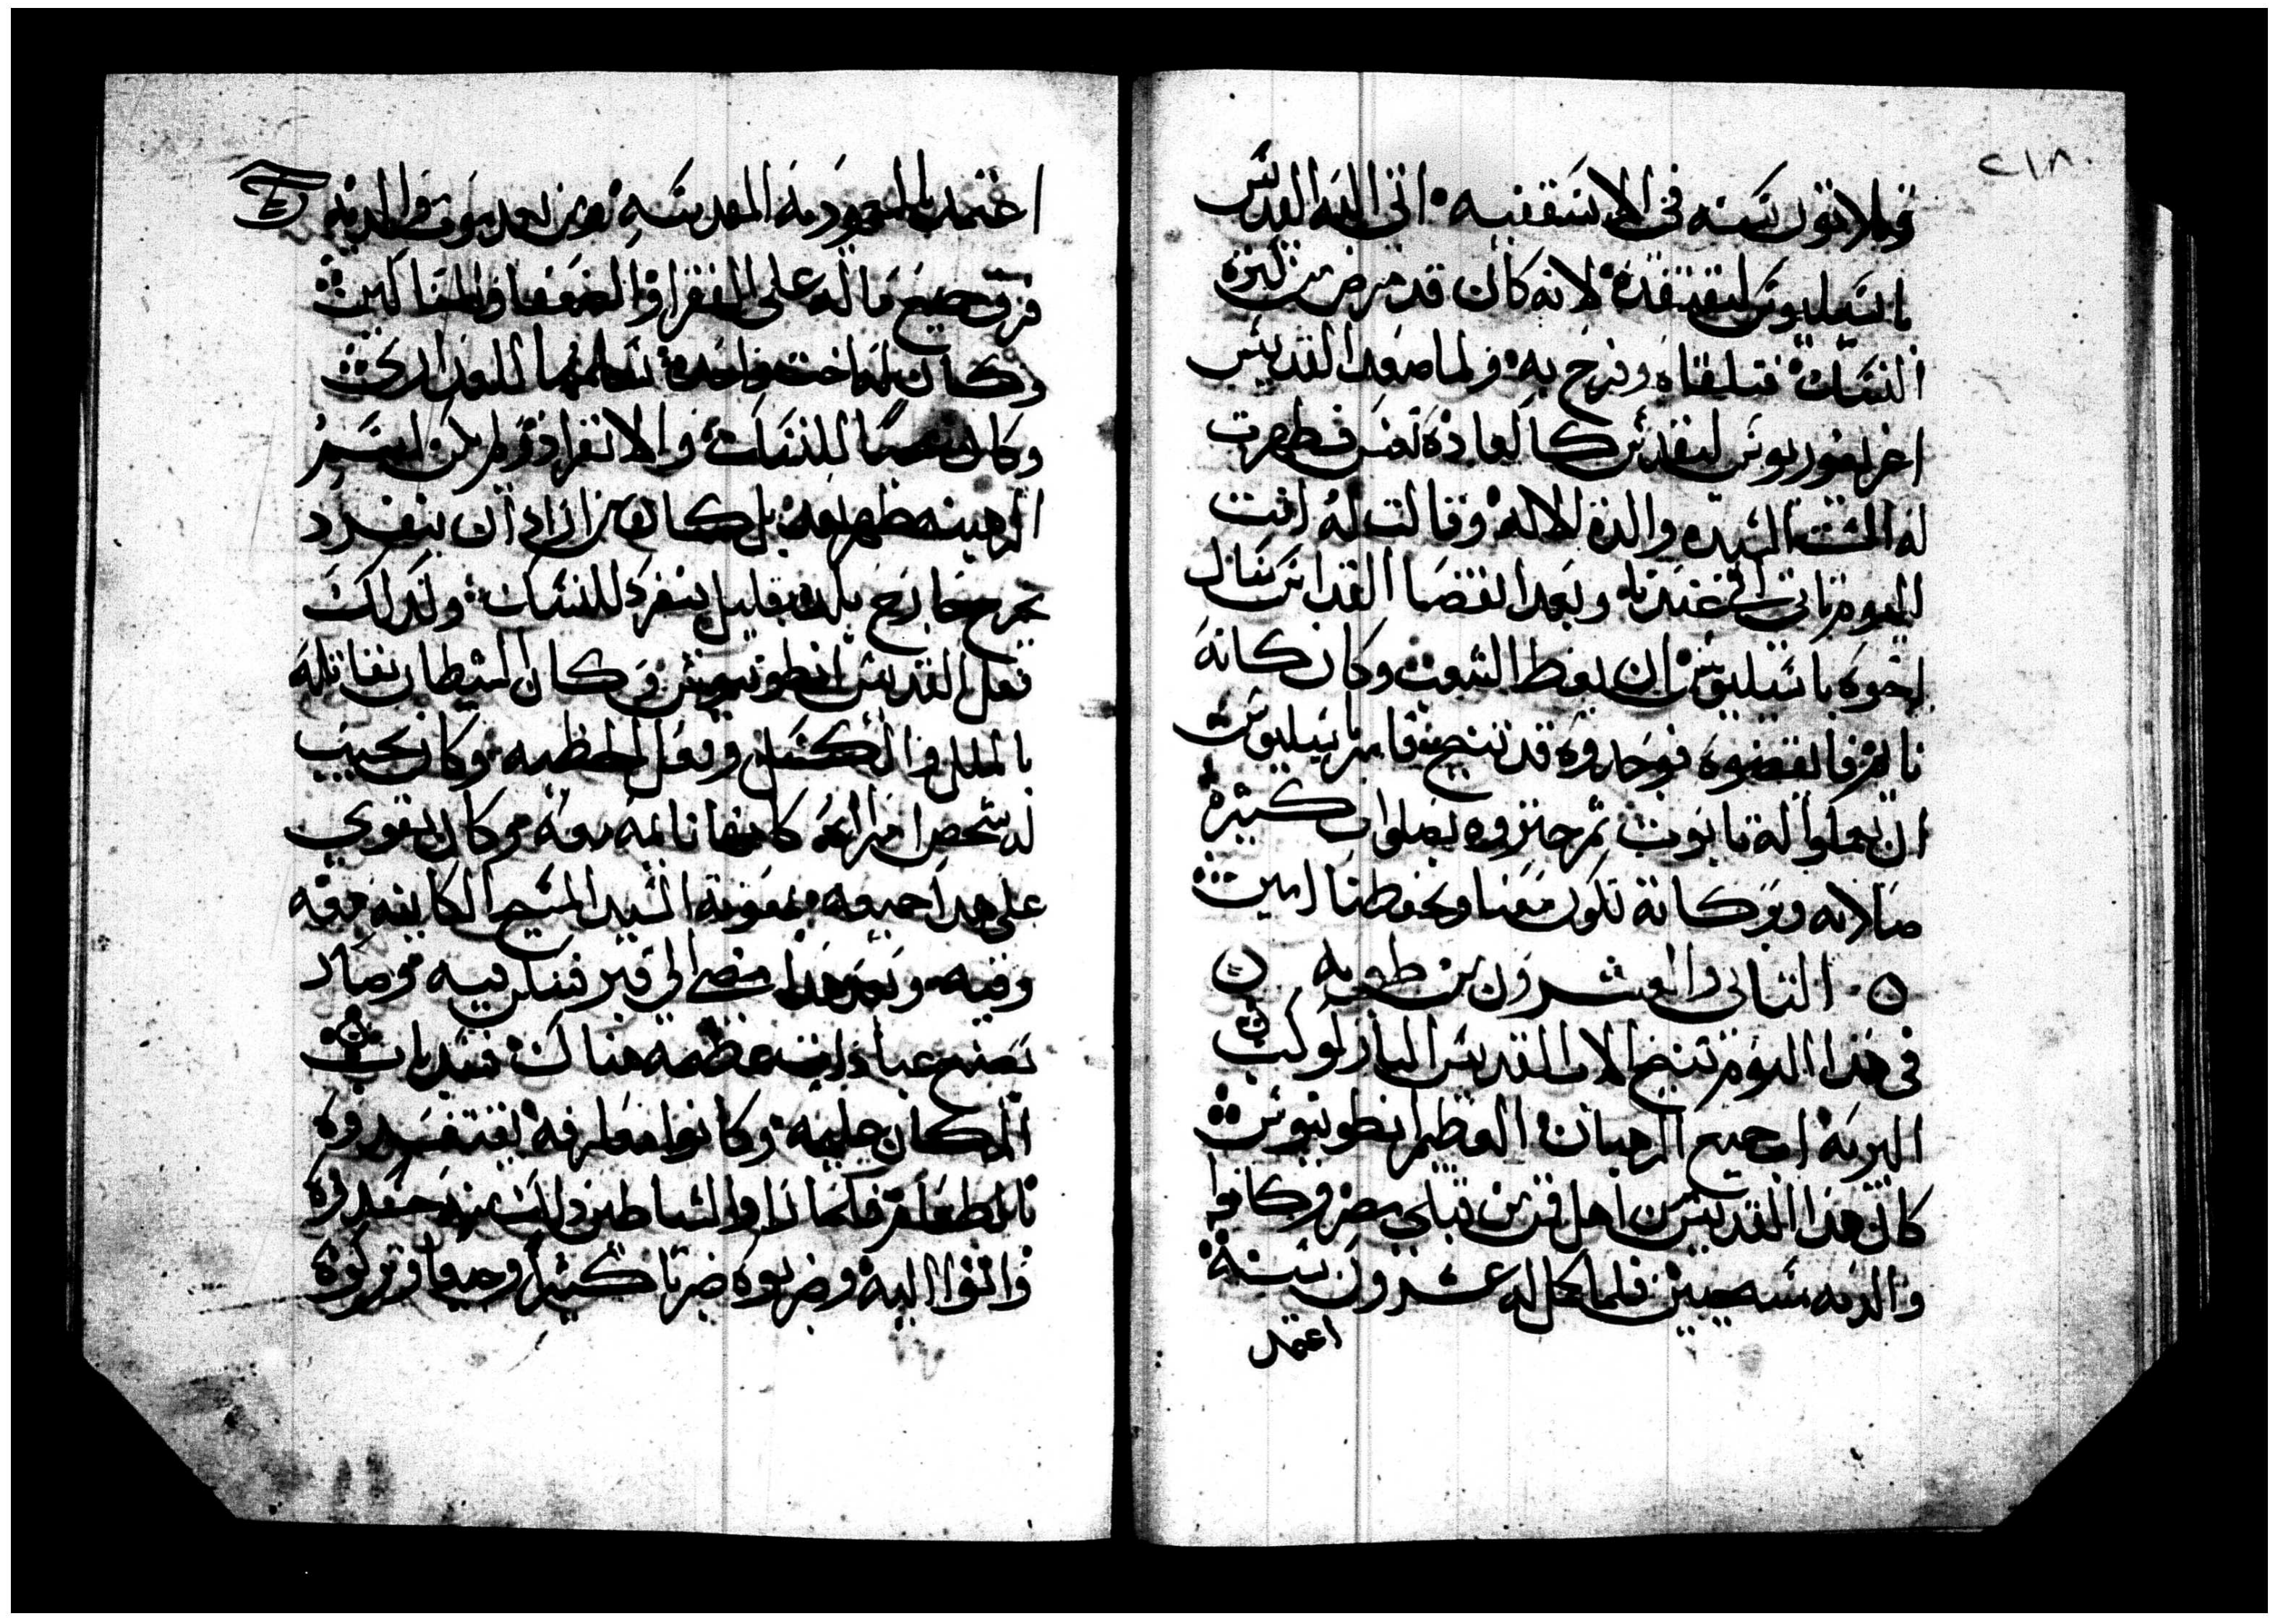 ٢١٨
وثلاثون سنه فى الاسقفيه اتى اليه القديس
باسيليوس ليفتقده لانه كان قد مرض من كثرة
النسك فتلقاه وفرح به ولما صعد القديس
اغريغوريوس ليقدس كالعادة فظهرت
له الست السيده والدة الاله وقالت له انت
اليوم تاتى الى عندنا وبعد انقضا القداس سال
اخوه باسيليوس ان يعظ الشعب وكان كانه
نايم فايقضوه فوجدوه قد تنيح فامر باسيليوس
ان يعملوا له تابوت ثم جنزوه بصلوات كثيرة
صلاته وبركاته تكون معنا وتحفظنا امين
الثانى والعشرون من طوبه
فى هذا اليوم تنيح الاب القديس البار كوكب
البريه اب جميع الرهبان العظيم انطونيوس
كان هذا القديس من اهل قمن قبلي مصر وكانوا
والديه مسيحيين فلما كمل له عشرون سنة
اعتمد
اعتمد بالمعموديه المقدسه ومن بعد موت والديه
فرق جميع ماله على الفقرا والضعفا والمساكين
وكان له اخت واحده سلمها للعذارى
وكان محبا للنسك والانفراد ولم يكن اسم
الرهبنه ظهر بعد بل كان من اراد ان ينفرد
يخرج خارج بلده بقليل ينفرد للنسك وكذلك
فعل القديس انطونيوس وكان الشيطان يقاتله
بالملل والكسل وفعل الخطيه وكان يجيب
له شخص امراه كانها نايمه معه وكان يقوي
على هذا جميعه بمعونة السيد المسيح الكاينه معه
وفيه وبعد هذا مضى الى قبر فسكن فيه وصار
يصنع عبادات عظيمه هناك فسد باب
المكان عليه وكانوا معارفه يفتقدوه
بالطعام فلما راوا الشياطين ذلك منه حسدوه
واتوا اليه وضربوه ضربا كثيرا وتركوه